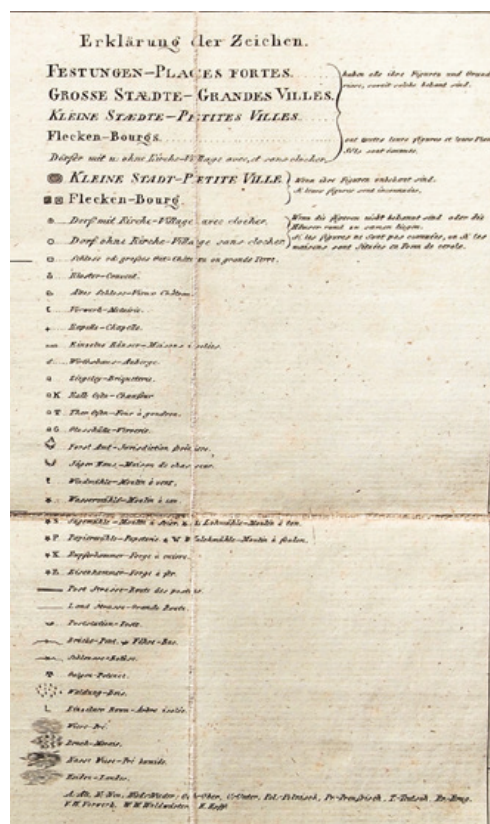 Erklärung der Zeichen.
FESTUNGEN-PLACES FORTES.
GROSSE STÆDTE-GRANDES VILLES.
KLEINE STÆDTE-PETITES VILLES.
Flecken-Bourgs.
Dörfer mit u. ohne Kirche-Village avec, et sans clocher.
haben alle ihre Figuren und Grund
risse, soweit solche bekant sind.
ont toutes leurs figures et leurs Plan
KLEINE STADT-PETITE VILLE
Flecken-Bourg.
Wenn ihre Figuren unbekant sind.
Si leurs figures sont inconnues.
Dorf mit Kirche-Village avec clocher.
Dorf ohne Kirche-Village sans clocher.
Wenn die figuren nicht bekannt sind oder die
Häuser rund zu samen liegen.
Si les figures ne sont pas connues, ou Si les
maisons sont Situées en Form de cercle.
Schloss od. grosses Gut-Château ou grande Terre.
Kloster-Couvent.
Altes Schloss-Vieux Château.
Vorwerk-Metairie.
Kapelle-Chapelle.
Einzelne Häuser-Maisons isolées.
Wirthshaus-Auberge.
Ziegeley-Briqueterie.
K Kalk Ofen-Chaufour
T Theer Ofen-Four à goudron.
G Glasshütte-Verrerie.
Forst Amt-Jurisdiction forestière.
Jäger Haus-Maison de chasseur.
Windmühle-Moulin à vent.
Wassermühle-Moulin à eau.
S Sägemühle-Moulin à scier. L Lohmühle-Moulin à tan.
P Papiermühle-Papeterie W Walckmühle-Moulin à foulon.
K Kupferhammer-Forge à cuivre.
E Eisenhammer-Forge à fer.
Post Strasse-Route des postes.
Land Strasse-Grande Route.
Poststation-Poste.
Brücke-Pont. Föhre-Bac.
Schleusse-Ecluse.
Galgen-Potence.
Waldung-Bois.
Einzelner Baum-Arbre isolé.
Wiese-Pré.
Bruch-Marais.
Nasse Wiese-Pré humide.
Heiden-Landes.
A. Alt, N. Neu, Nied. Nieder, Ob. Ober, U. Unter, Pol. Polnisch, Pr. Preussisch, T. Teutsch,
V.W. Vorwerk, W.W. Waldwärter,